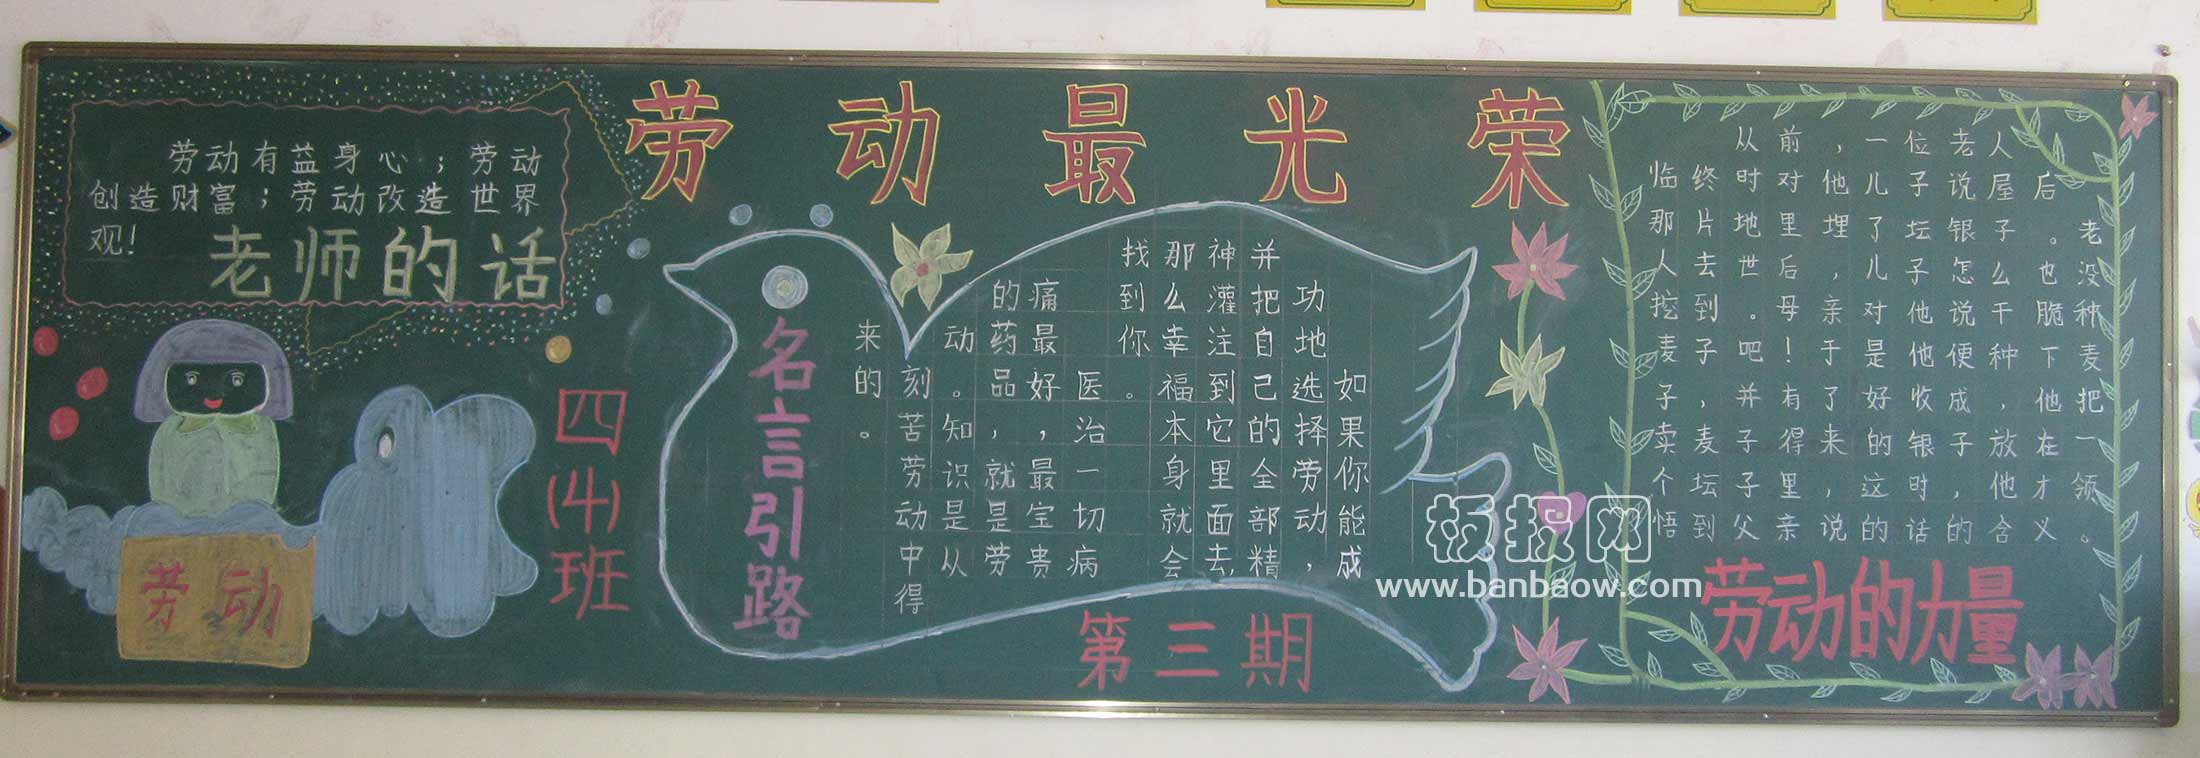 劳动最光荣
劳动有益身心；劳动
创造财富；劳动改造世界
观！
老师的话
劳动
四(4)班
名言引路
如果你能成
功地选择劳动，
并把自己的全部精
神灌注到它里面去，
那么幸福本身就会
找到你。
医治一切病
痛最好，最宝贵
的药品，就是劳
动。知识是从
刻苦劳动中得
来的。
第三期
从前，一位老人
临终时对他儿子说屋后
那片地里埋了坛银子。老
人去世后，儿子怎么也没
挖到。母亲对他说干脆种
麦子吧！于是他便种下麦
子，并有了好收成，他把
卖麦子得来的银子放在一
个坛子里，这时他才领
悟到父亲说的话的含义。
劳动的力量
板报网
www.banbaow.com